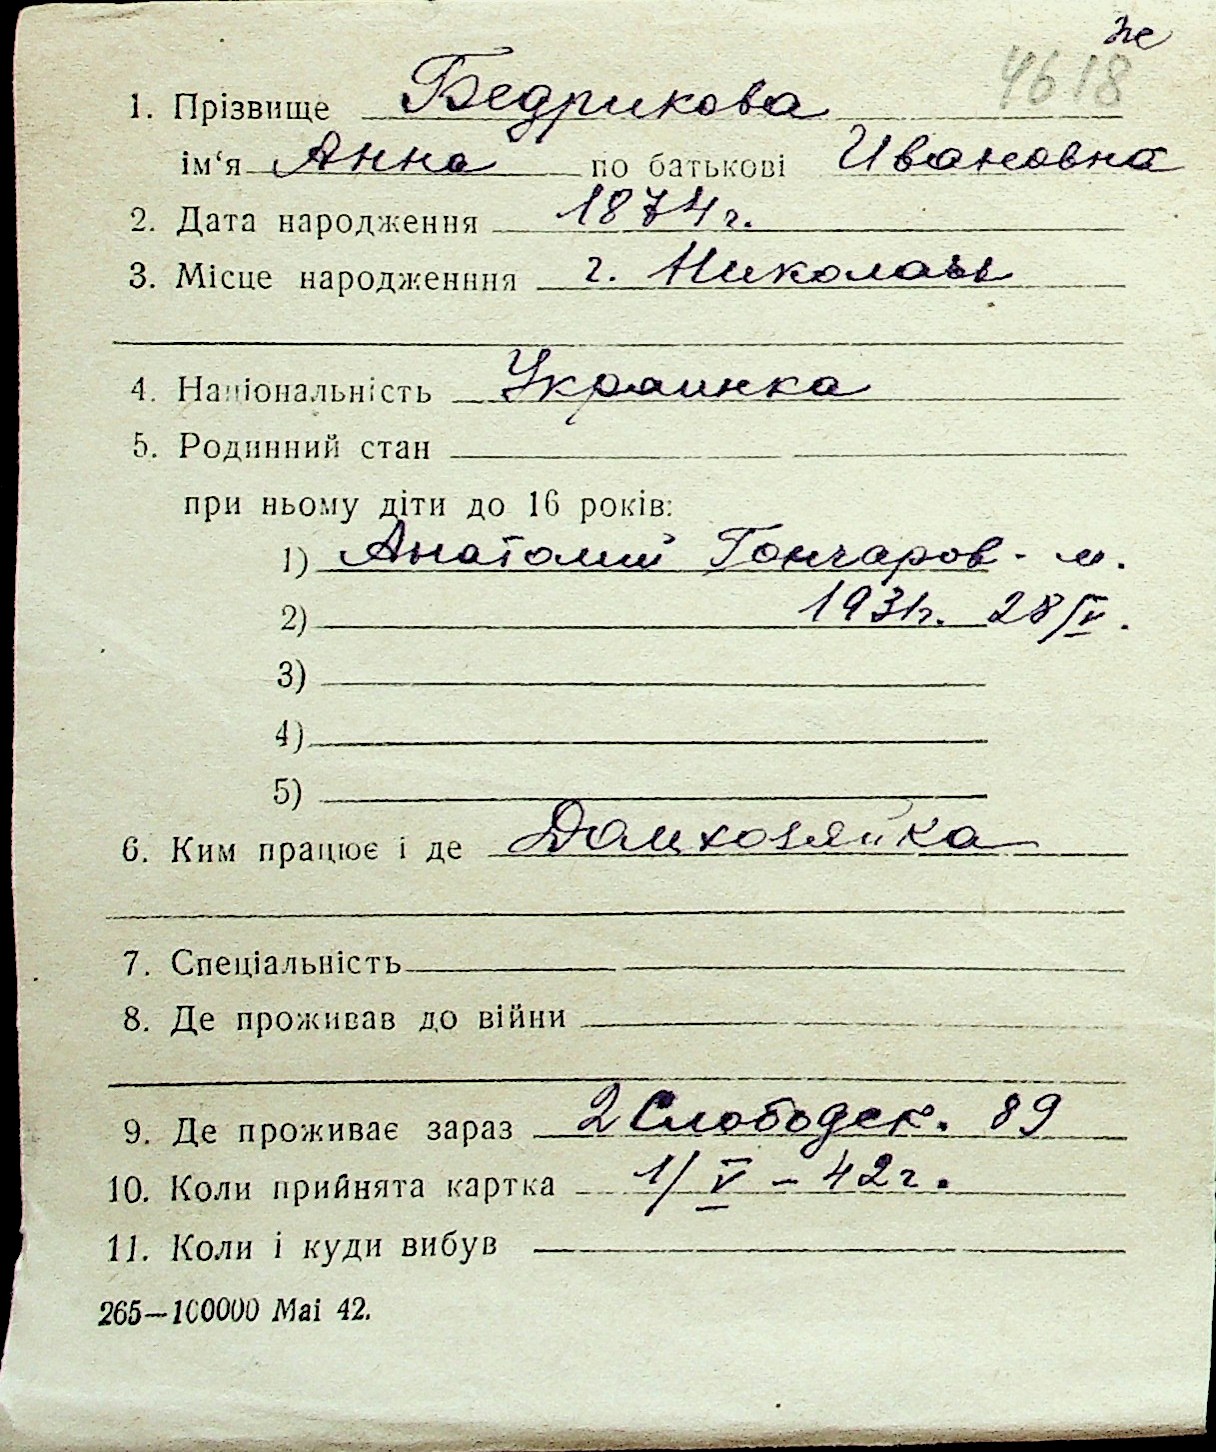 же
4618
1. Прізвище Бедрикова
ім‘я Анна по батькові Ивановна
2. Дата народження 1874 г.
3. Місце народженння г. Николаев
4. Національність Украинка
5. Родинний стан
при ньому діти до 16 років:
1) Анатолий Гончаров - м.
2) 1931 г. 28/IV.
3)
4)
5)
6. Ким працює і де Домхозяйка
7. Спеціальність
8. Де проживав до війни
9. Де проживає зараз 2 Слободск. 89
10. Коли прийнята картка 1/V – 42 г.
11. Коли і куди вибув
265—100000 Mai 42.